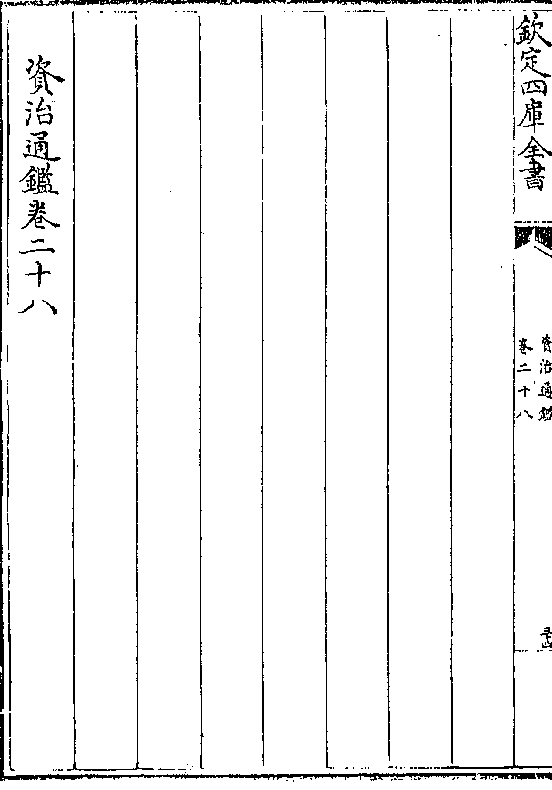 欽定四庫全書
資治通鑑
卷二十八
資治通鑑卷二十八